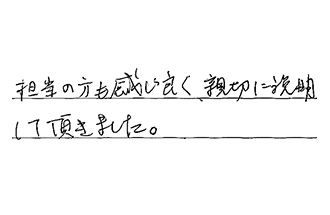 担当の方も感じ良く、親切に説明
して頂きました。